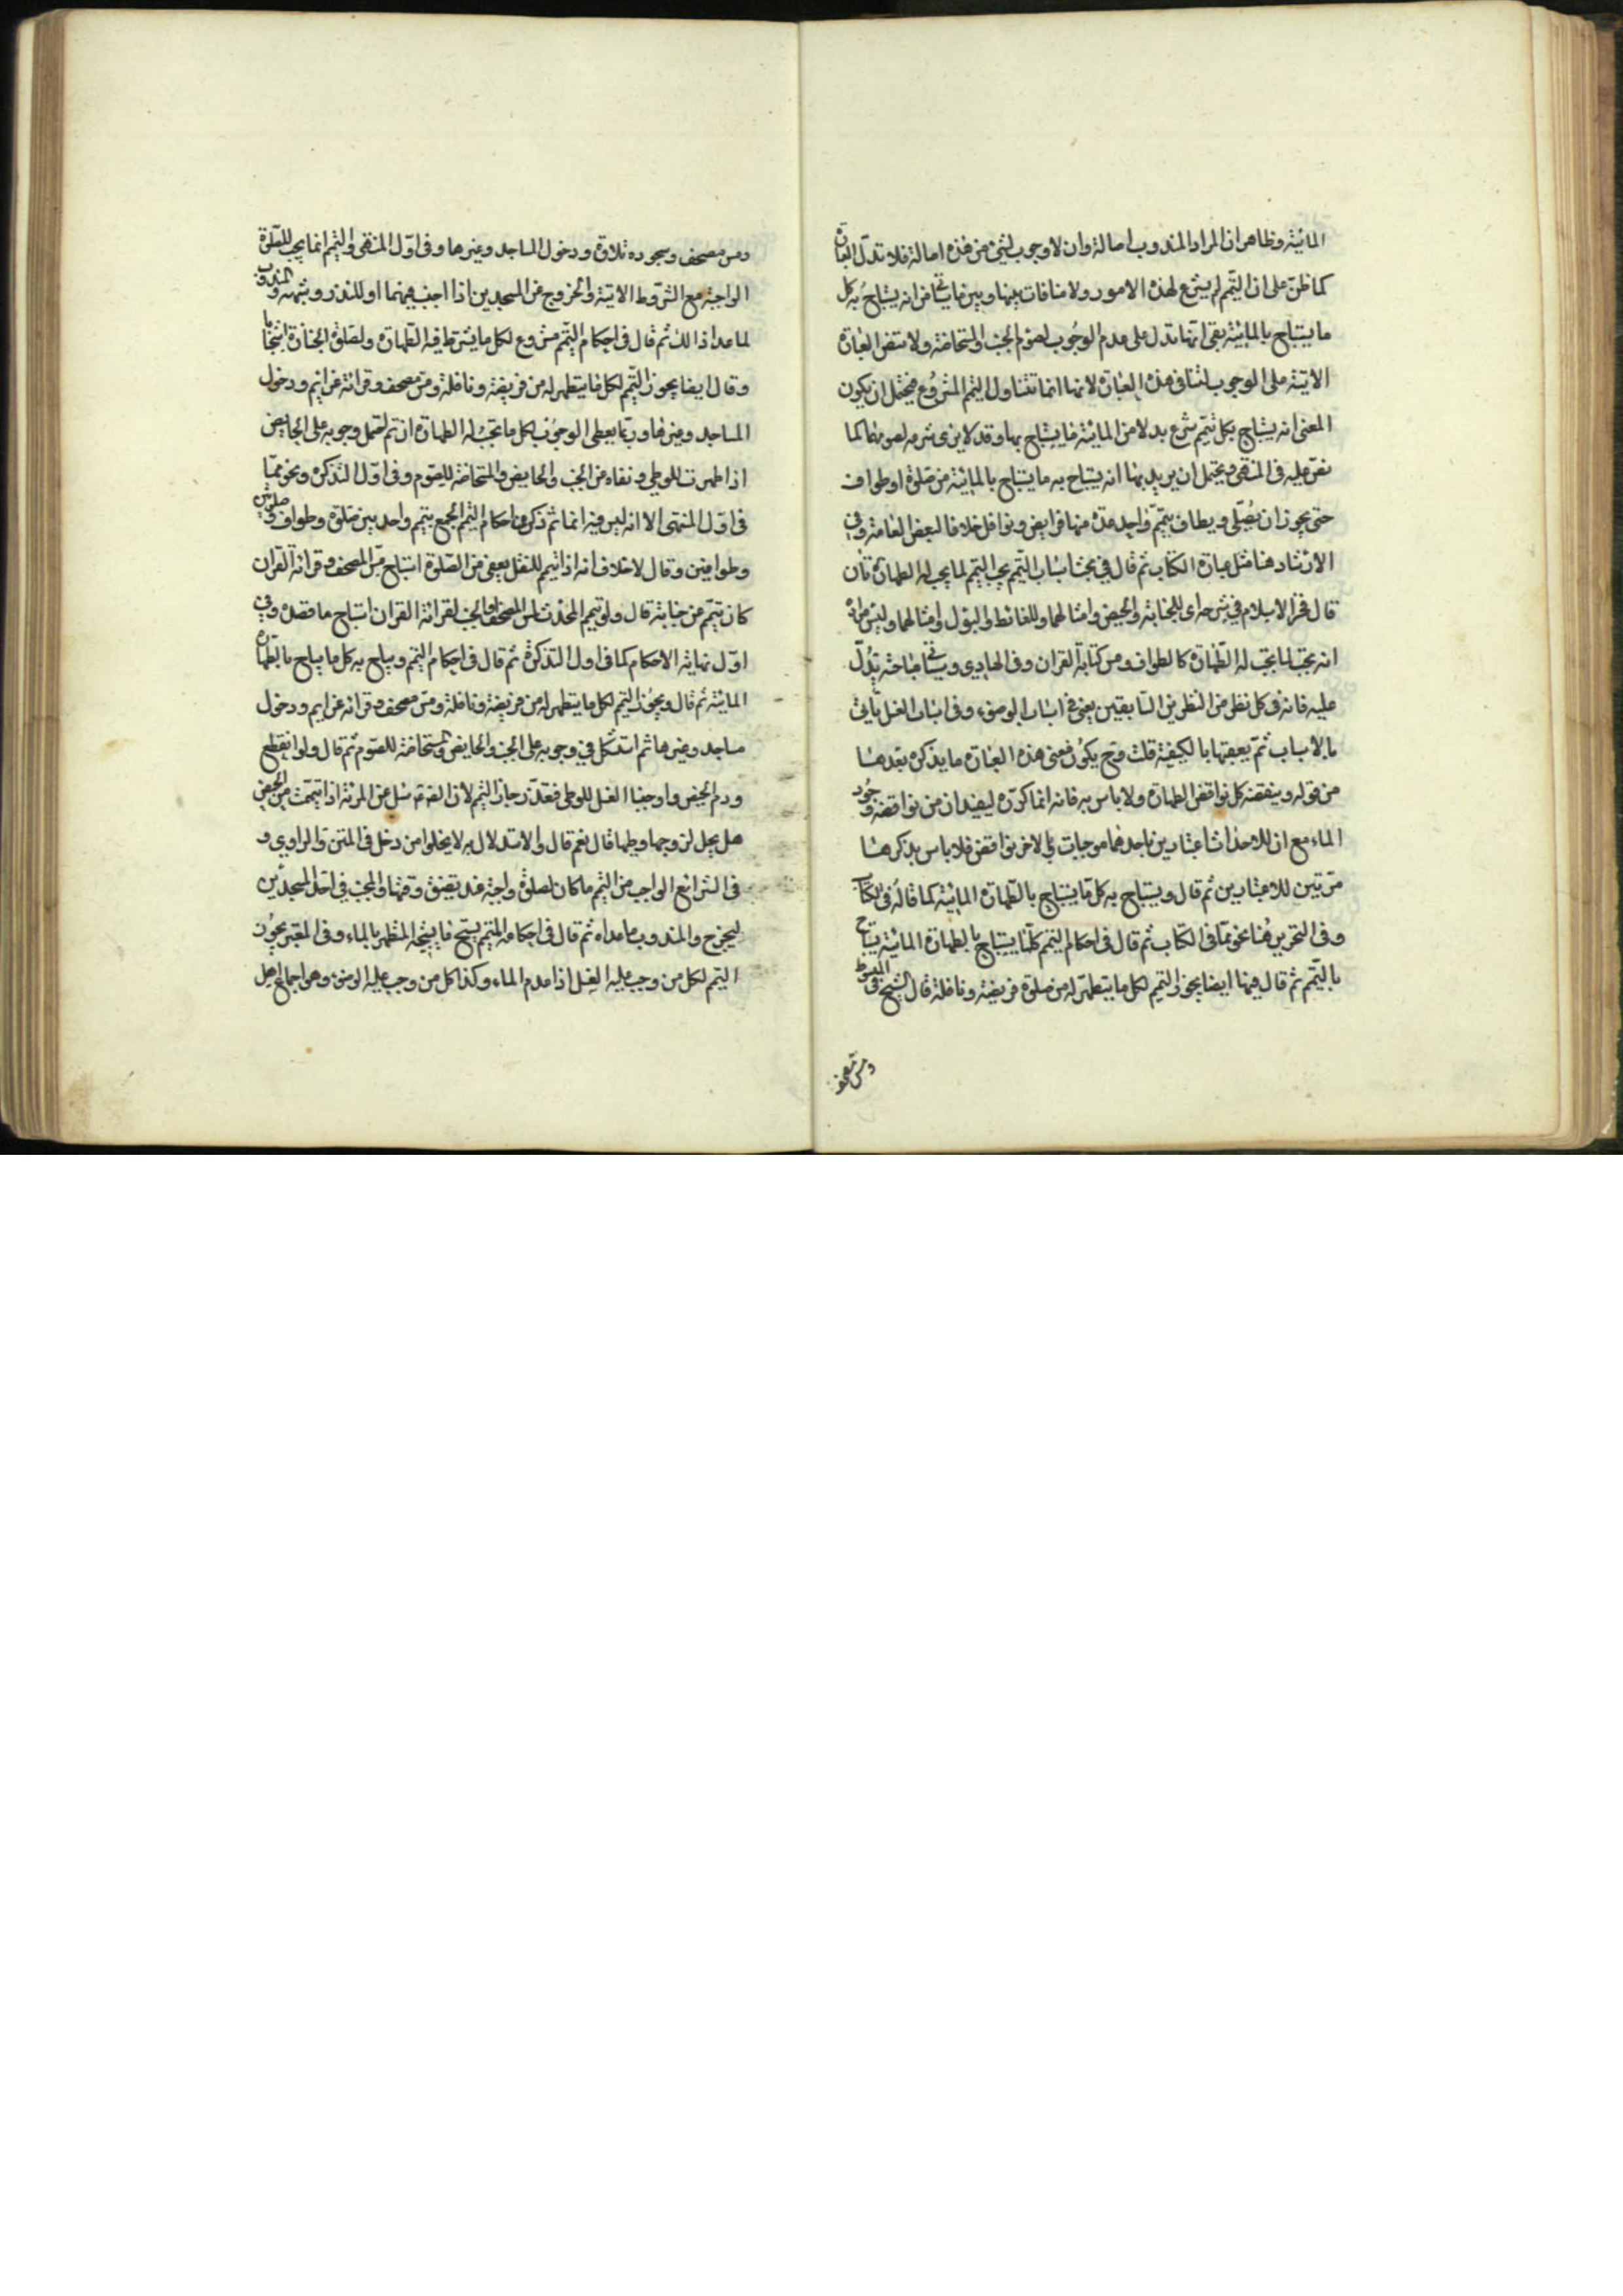 المائية وظاهر ان المراد المندوب اصالة وان لا وجوب لشئ من هذه اصالة فلا تدل العبارة
كما ظن على ان التيمم لم يشرع لهذه الامور ولا منافات بينها وبين ما سيأتي من انه يستباح به كل
ما يستباح بالمائية بقى انها تدل على عدم الوجوب لصوم الجنب والمستحاضة ولا منتض العبارة
الاتية على الوجوب لتنافى هذه العبارة لانها انما تتناول التيمم المشروع فيحتمل ان يكون
المعنى انه يستباح بكل تيمم شرع بدلا من المائية ما يستباح بها وقد لا يرى شرعه لصومهما كما
نص عليه فى المنتهى ويحتمل ان يريد بها انه يستباح به ما يستباح بالمائية من صلوة او طواف
حتى يجوز ان يصلى ويطاف بتيمم واحد عدة منها فرايض ونوافل خلافا لبعض العامة وفي
الارشاد هنا مثل عبارة الكتاب ثم قال في بحث اسباب التيمم يجب التيمم لما يجب له الطهارتان
قال فخر الاسلام في شرحه اى للجنابة والحيض وامثالهما وللغائط والبول وامثالهما وليس مراده
انه يجب لما يجب له الطهارة كالطواف ومس كتابة القران وفى الهادي وسيأتي مباحثه تدل
عليه فانه فى كل نظر من النظرين السابقين يعنى في اسباب الوضوء وفى اسباب الغسل يأتي
بالاسباب ثم يعقبها بالكيفية قلت وح يكون معنى هذه العبارة ما يذكره بعد هنا
من قوله وينقضه كل نواقض الطهارة ولا باس به فانه انما كرره ليفيد ان من نواقضه وجود
الماء مع ان للاحداث اعتبارين باحدهما موجبات وبالاخر نواقض فلا باس بذكر هنا
مرتين للاعتبارين ثم قال ويستباح به كل ما يستباح بالطهارة المائية كما قاله فى الكتاب
وفى التحرير هنا نحو مما فى الكتاب ثم قال فى احكام التيمم كلما يستباح بالطهارة المائية يستباح
بالتيمم ثم قال فيها ايضا يجوز التيمم لكل ما يتطهر له من صلوة فريضة ونافلة قال الشيخ فى المبسوط
ومس مصحف
ومس مصحف وسجود تلاوة ودخول المساجد وغيرها وفى اول المنتهى والتيمم انما يجب للصلوة
الواجبة مع الشروط الاتية والخروج من المسجدين اذا اجنب فيهما او للنذر وشبهه والمندوب
لما عدا ذالك ثم قال فى احكام التيمم مشروع لكل ما يشترط فيه الطهارة ولصلوة الجنازة استحبابا
وقال ايضا يجوز التيمم لكل ما يتطهر له من فريضة ونافلة ومس مصحف وقرائة عزائم ودخول
المساجد وغيرها وربما يعطى الوجوب لكل ما تجب له الطهارة ان تم لتحمل وجوبه على الحايض
اذا طهرت للوطي ونفاه من الجنب والحايض والمستحاضة للصوم وفى اول التذكرة ونحو مما
فى اول المنتهى الا انه ليس فيه انما ثم ذكر فى احكام التيمم الجمع بتيمم واحد بين صلوة وطواف وصلوتين
وطوافين وقال لا خلاف انه اذا تيمم للنفل يعنى من الصلوة استباح مس المصحف وقرائة القران
كان تيمم من جنابة قال ولو تيمم المحدث لمس المصحف او الجنب لقرائة القران استباح ما قصده وفي
اول نهاية الاحكام كما فى اول التذكرة ثم قال فى احكام التيمم ويباح به كل ما يباح بالطهارة
المائية ثم قال ويجوز التيمم لكل ما يتطهر له من فريضة ونافلة ومس مصحف وقرائة عزايم ودخول
مساجد وغيرها ثم استشكل في وجوبه على الجنب والحايض والمستحاضة للصوم ثم قال ولو انقطع
دم الحيض واوجبنا الغسل للوطى فتعذر جاز التيمم لان الصادق سئل عن المرئة اذا تيممت من الحيض
هل يحل لزوجها وطيها قال نعم قال والاستدلال به لا يخلوا من دخل فى المتن والراوي و
فى الشرائع الواجب من التيمم ما كان لصلوة واجبة عند تضيق وقتها وللجنب في احد المسجدين
ليخرج به والمندوب ما عداه ثم قال فى احكامه المتيمم يستبيح ما يستبيحه المتطهر بالماء وفى المعتبر يجوز
التيمم لكل من وجب عليه الغسل اذا عدم الماء وكذا كل من وجب عليه الوضوء وهو اجماع اهل